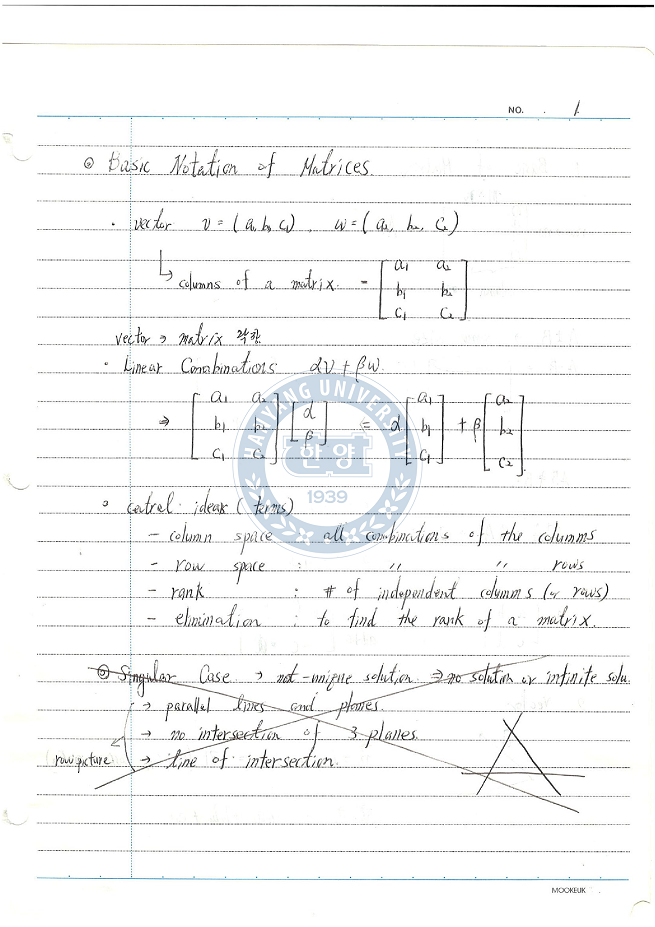 NO. . 1.
◎ Basic Notation of Matrices.
· vector v = (a, b, c₁), w = (a₂, b₂, c₂)
↳ columns of a matrix. = [ a₁ a₂
b₁ b₂
c₁ c₂ ]
vector → matrix
· Linear Combinations αv + βw.
⇒ [ a₁ a₂ ; b₁ b₂ ; c₁ c₂ ] [ α ; β ] = α [ a₁ ; b₁ ; c₁ ] + β [ a₂ ; b₂ ; c₂ ]
HANYANG UNIVERSITY
한양
1939
· central ideas (terms)
- column space : all combinations of the columns
- row space : " " rows
- rank : # of independent columns (or rows)
- elimination : to find the rank of a matrix.
◎ Singular Case → not-unique solution. ⇒ no solution or infinite solu.
→ parallel lines and planes.
→ no intersection of 3 planes.
(row picture → line of intersection.
MOOKEUK